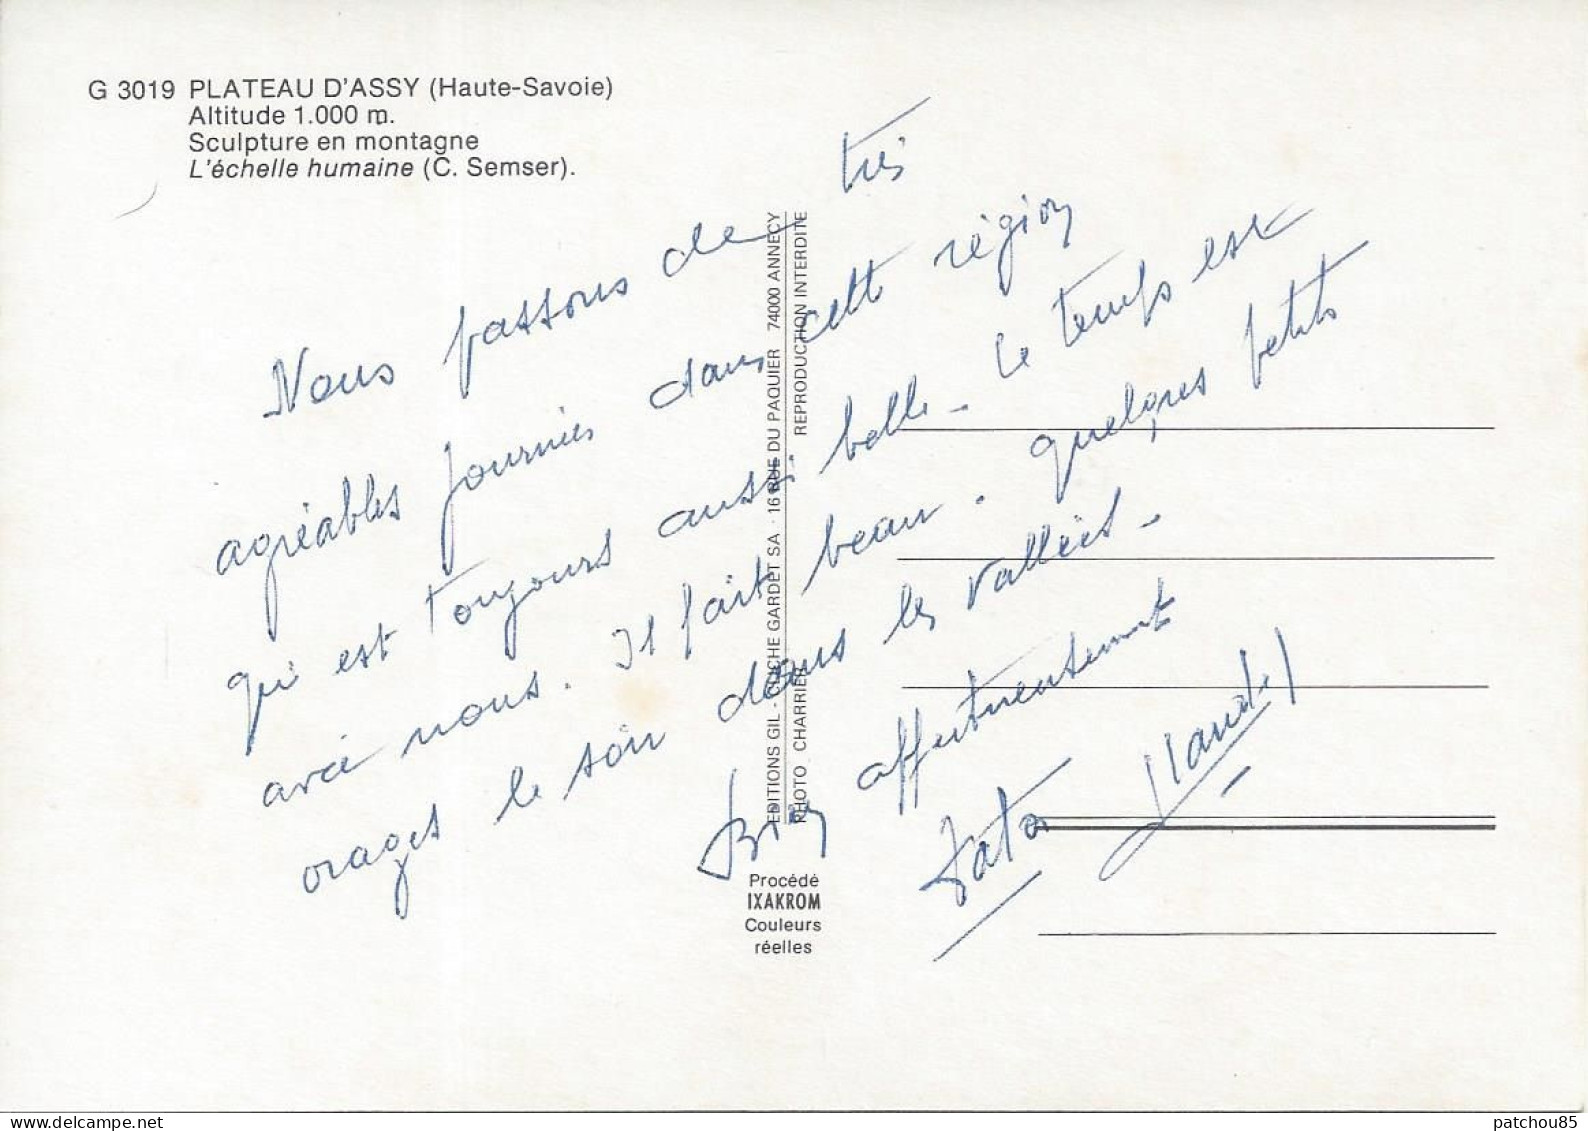 G 3019 PLATEAU D'ASSY (Haute-Savoie)
Altitude 1.000 m.
Sculpture en montagne
L'échelle humaine (C. Semser).
Nous passons de très
agréables journées dans cette région
qui est toujours aussi belle. Le temps est
avec nous. Il fait beau. quelques petits
orages le soir dans les vallées.
Bien affectueusement
EDITIONS GIL - CLICHE GARDET SA - 16 RUE DU PAQUIER 74000 ANNECY
PHOTO CHARRIER REPRODUCTION INTERDITE
Procédé
IXAKROM
Couleurs
réelles
patchou85